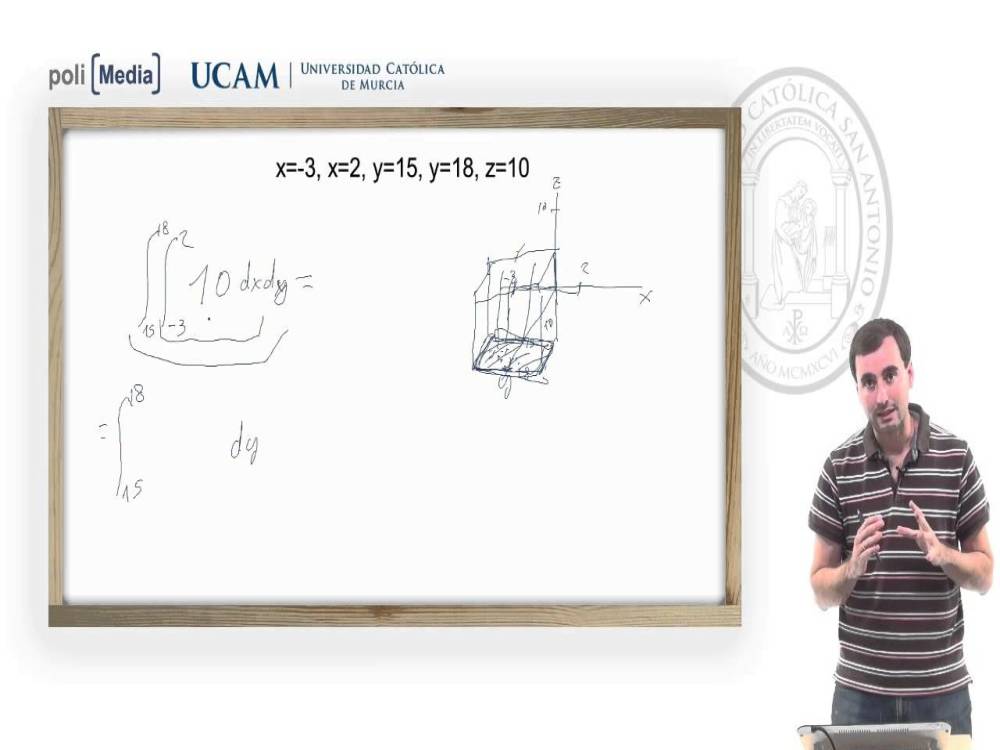 poli [Media]
UCAM | UNIVERSIDAD CATÓLICA
DE MURCIA
CATÓLICA SAN ANTONIO
IN LIBERTATEM VOCATI
AÑO MCMXCVI
x=-3, x=2, y=15, y=18, z=10
z
10
18 2
∫ ∫ 10 dxdy =
15 -3
-3 2
x
10
15
18
y
18
= ∫ dy
15